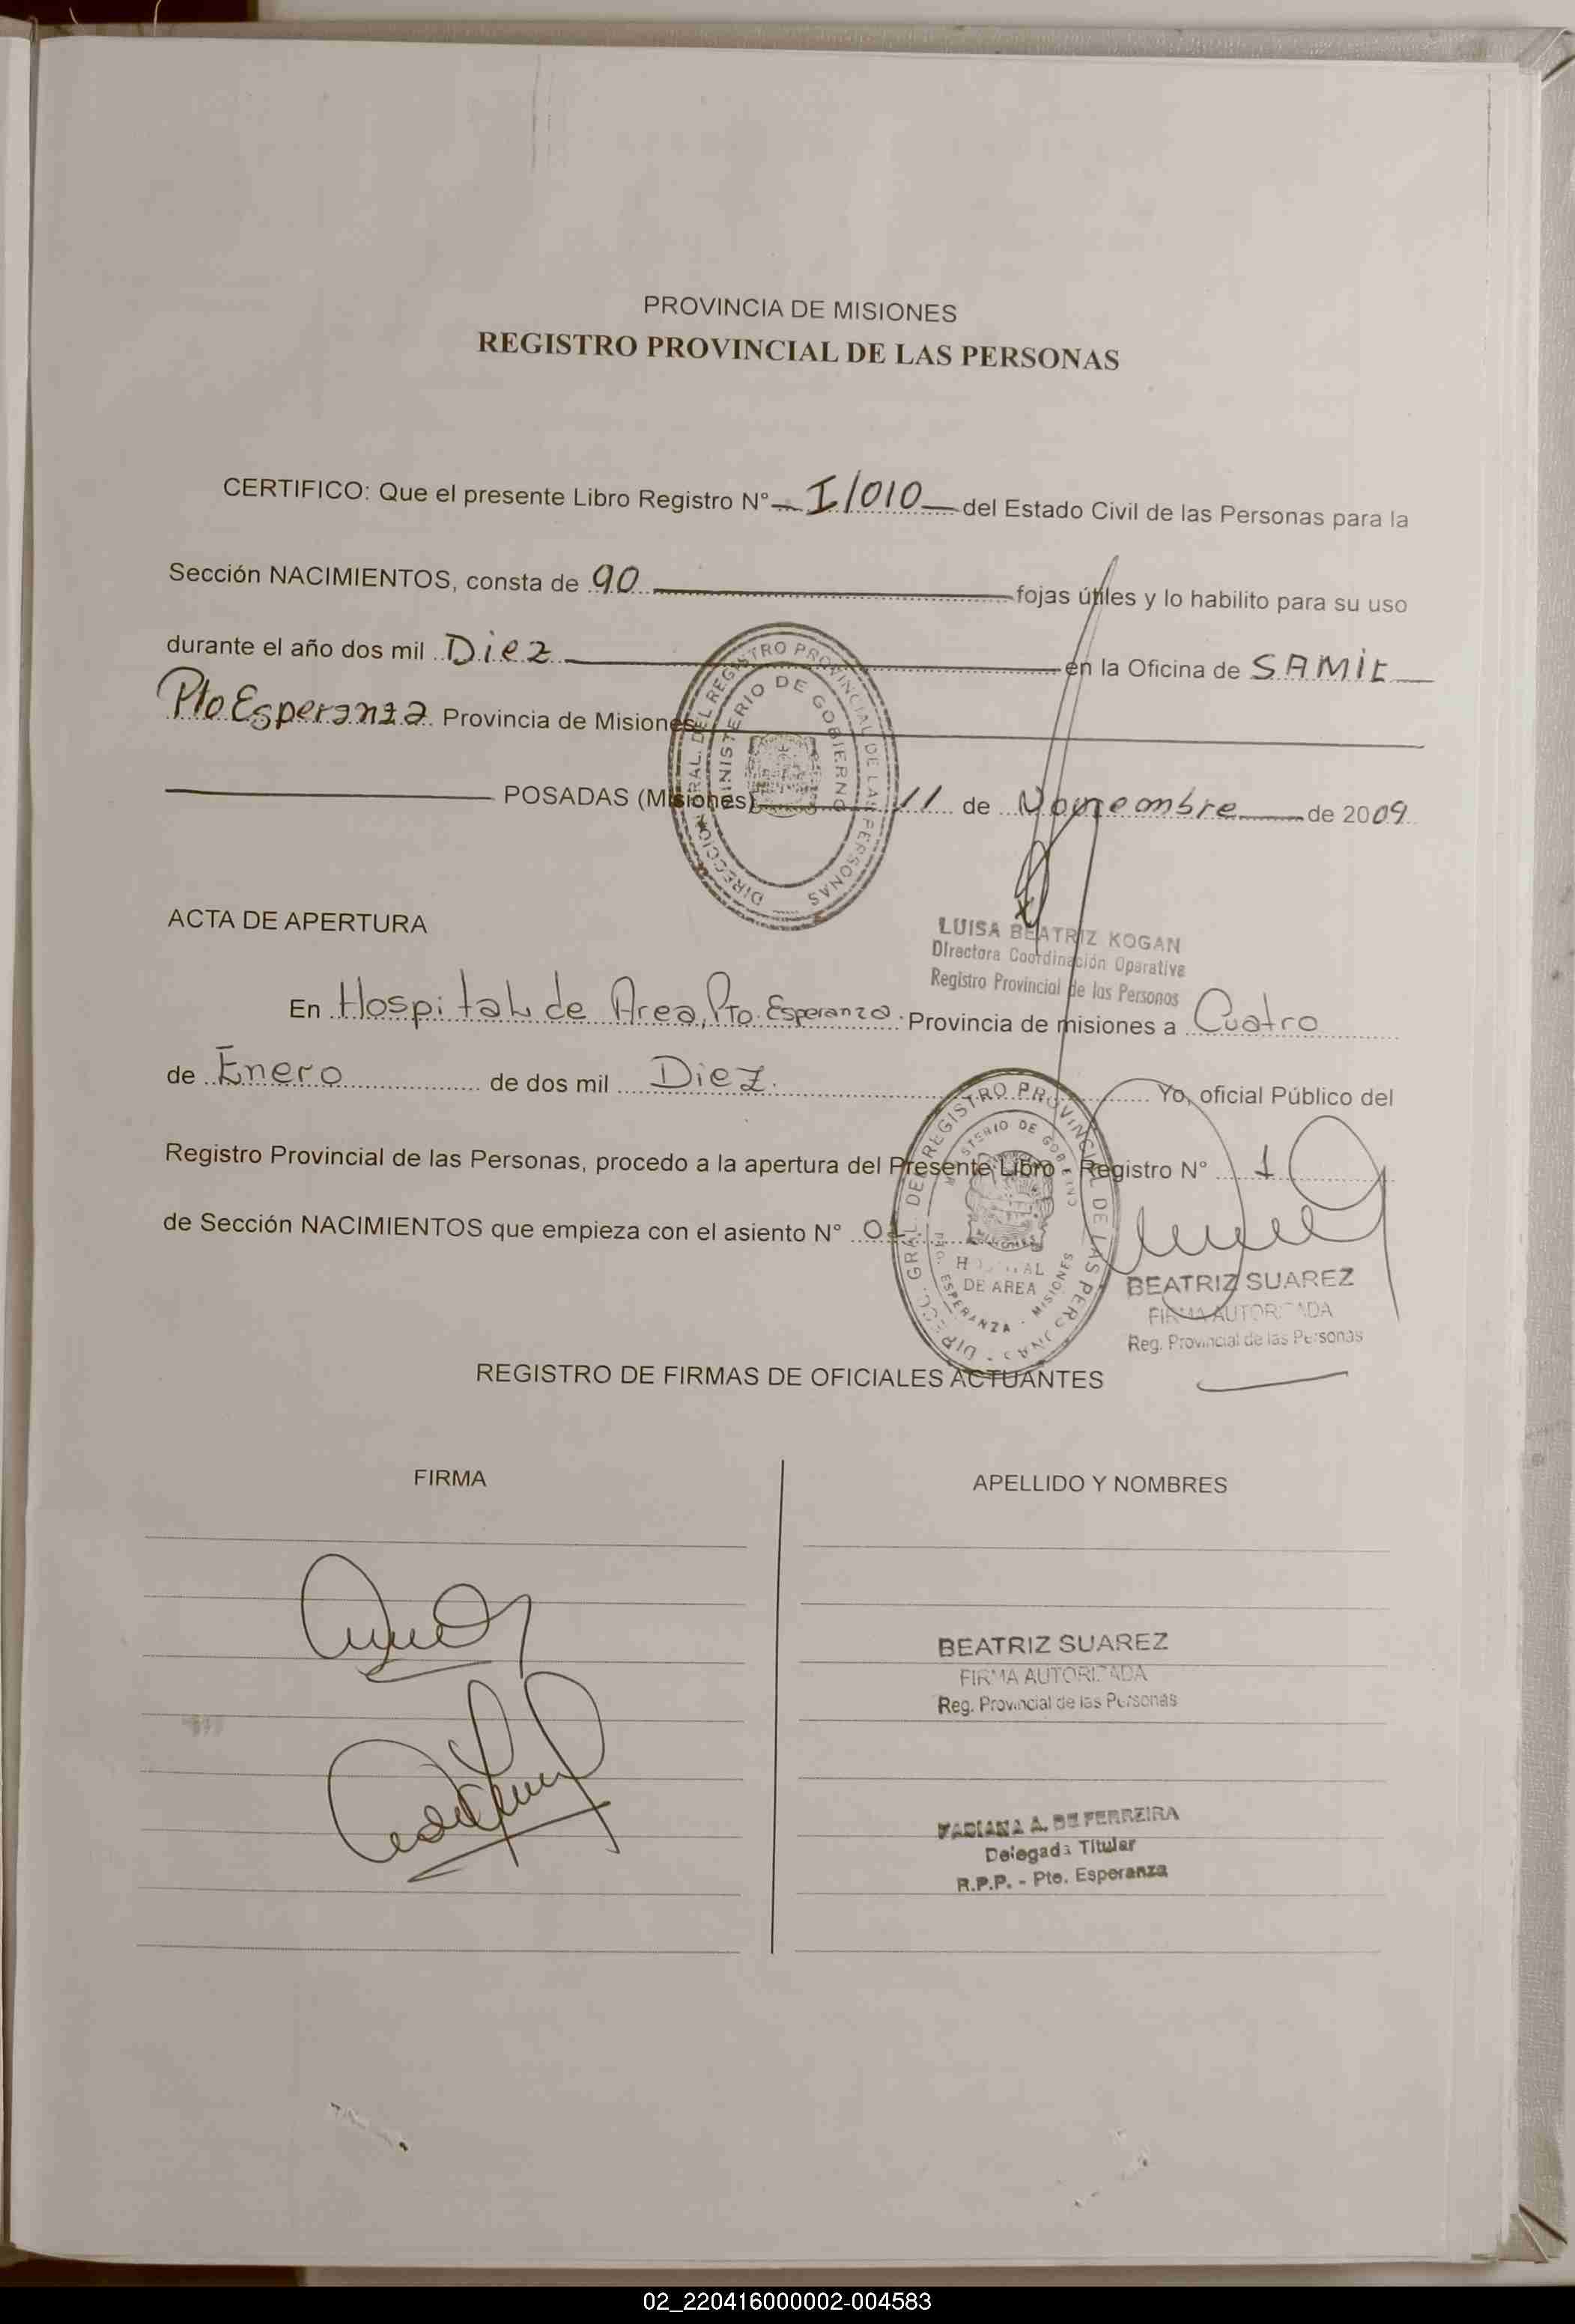 PROVINCIA DE MISIONES
REGISTRO PROVINCIAL DE LAS PERSONAS
CERTIFICO: Que el presente Libro Registro N° I/010 del Estado Civil de las Personas para la
Sección NACIMIENTOS, consta de 90 fojas útiles y lo habilito para su uso
durante el año dos mil Diez en la Oficina de SAMIC
Pto Esperanza Provincia de Misiones
POSADAS (Misiones) 11 de Noviembre de 2009
DIRECCION GRAL. DEL REGISTRO PROVINCIAL DE LAS PERSONAS
MINISTERIO DE GOBIERNO
ACTA DE APERTURA
LUISA BEATRIZ KOGAN
Directora Coordinación Operativa
Registro Provincial de las Personas
En Hospital de Area, Pto. Esperanza. Provincia de misiones a Cuatro
de Enero de dos mil Diez. Yo, oficial Público del
Registro Provincial de las Personas, procedo a la apertura del Presente Libro Registro N° 1
de Sección NACIMIENTOS que empieza con el asiento N° 01
DIRECC. GRAL. DEL REGISTRO PROVINCIAL DE LAS PERSONAS
MINISTERIO DE GOBIERNO
MISIONES
HOSPITAL
DE AREA
PTO. ESPERANZA - MISIONES
BEATRIZ SUAREZ
FIRMA AUTORIZADA
Reg. Provincial de las Personas
REGISTRO DE FIRMAS DE OFICIALES ACTUANTES
FIRMA
APELLIDO Y NOMBRES
BEATRIZ SUAREZ
FIRMA AUTORIZADA
Reg. Provincial de las Personas
A. DE FERREIRA
Delegada Titular
R.P.P. - Pto. Esperanza
02_220416000002-004583